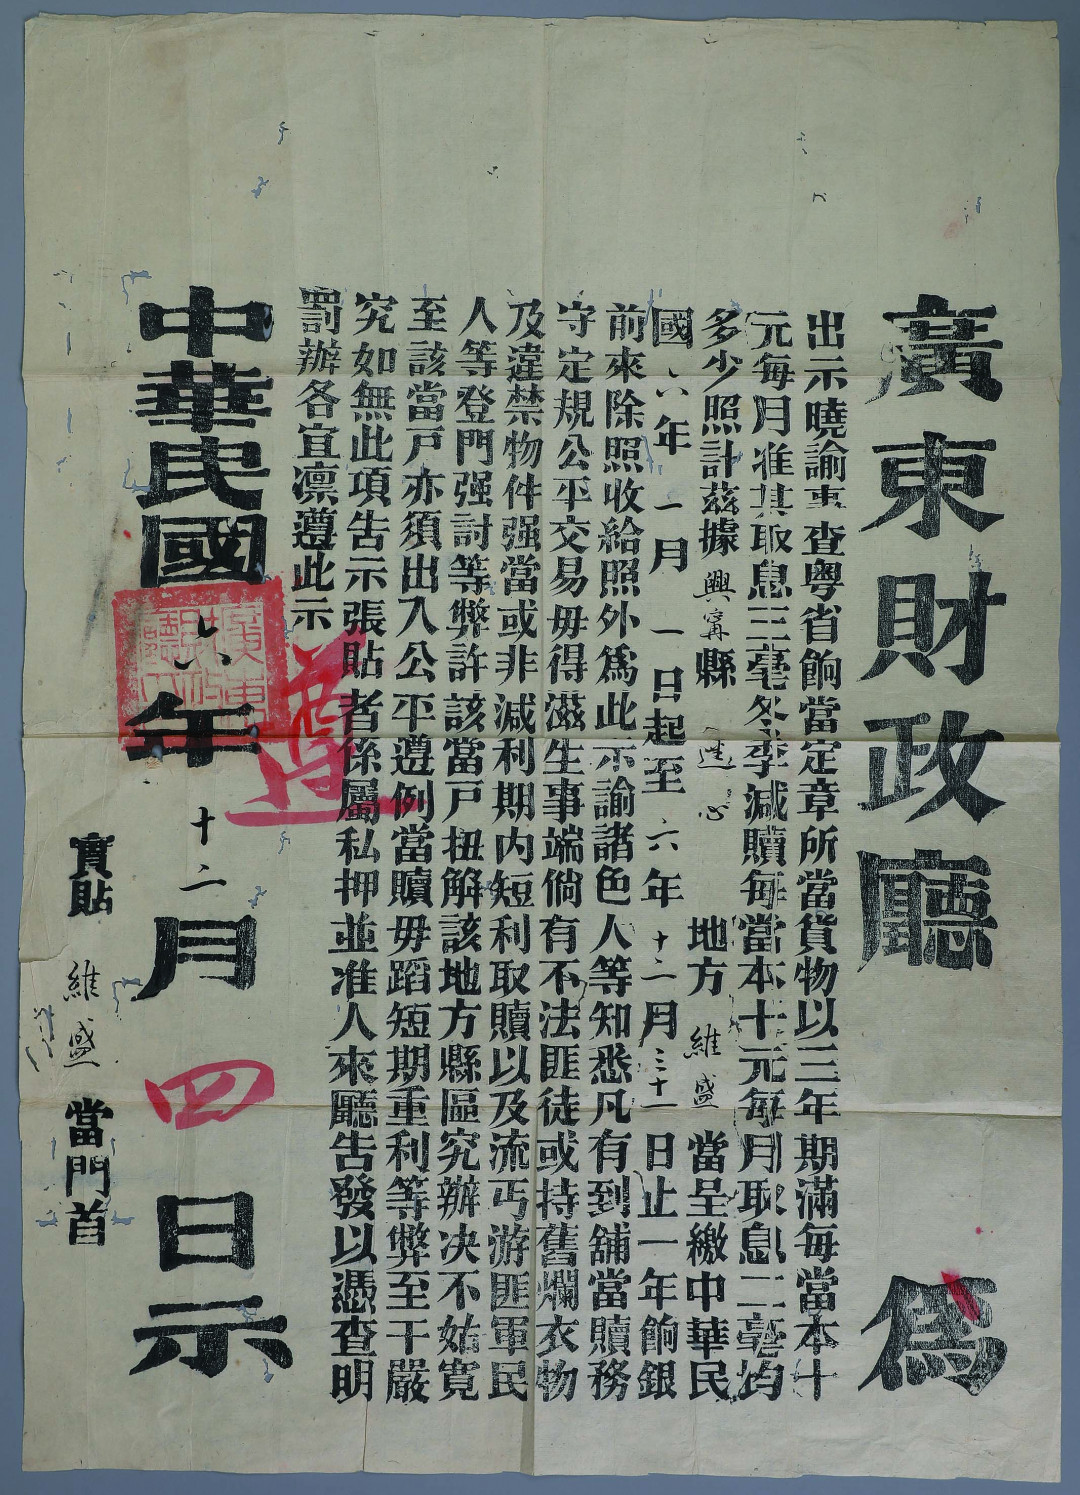 廣東財政廳 為
出示曉諭事查粵省餉當定章所當貨物以三年期滿每當本十
元每月准其取息三毫冬季減贖每當本十元每月取息二毫均
多少照計茲據興寧縣 地方維盛當呈繳中華民
國六年一月一日起至六年十二月三十一日止一年餉銀
前來除照收給照外為此示諭諸色人等知悉凡有到舖當贖務
守定規公平交易毋得滋生事端倘有不法匪徒或持舊爛衣物
及違禁物件强當或非減利期内短利取贖以及流丐游匪軍民
人等登門强討等弊許該當戶扭解該地方縣區究辦决不姑寬
至該當戶亦須出入公平遵例當贖毋蹈短期重利等弊至干嚴
究如無此項告示張貼者係屬私押並准人來廳告發以憑查明
罰辦各宜凛遵此示
遵
中華民國六年十二月四日示
實貼維盛當門首